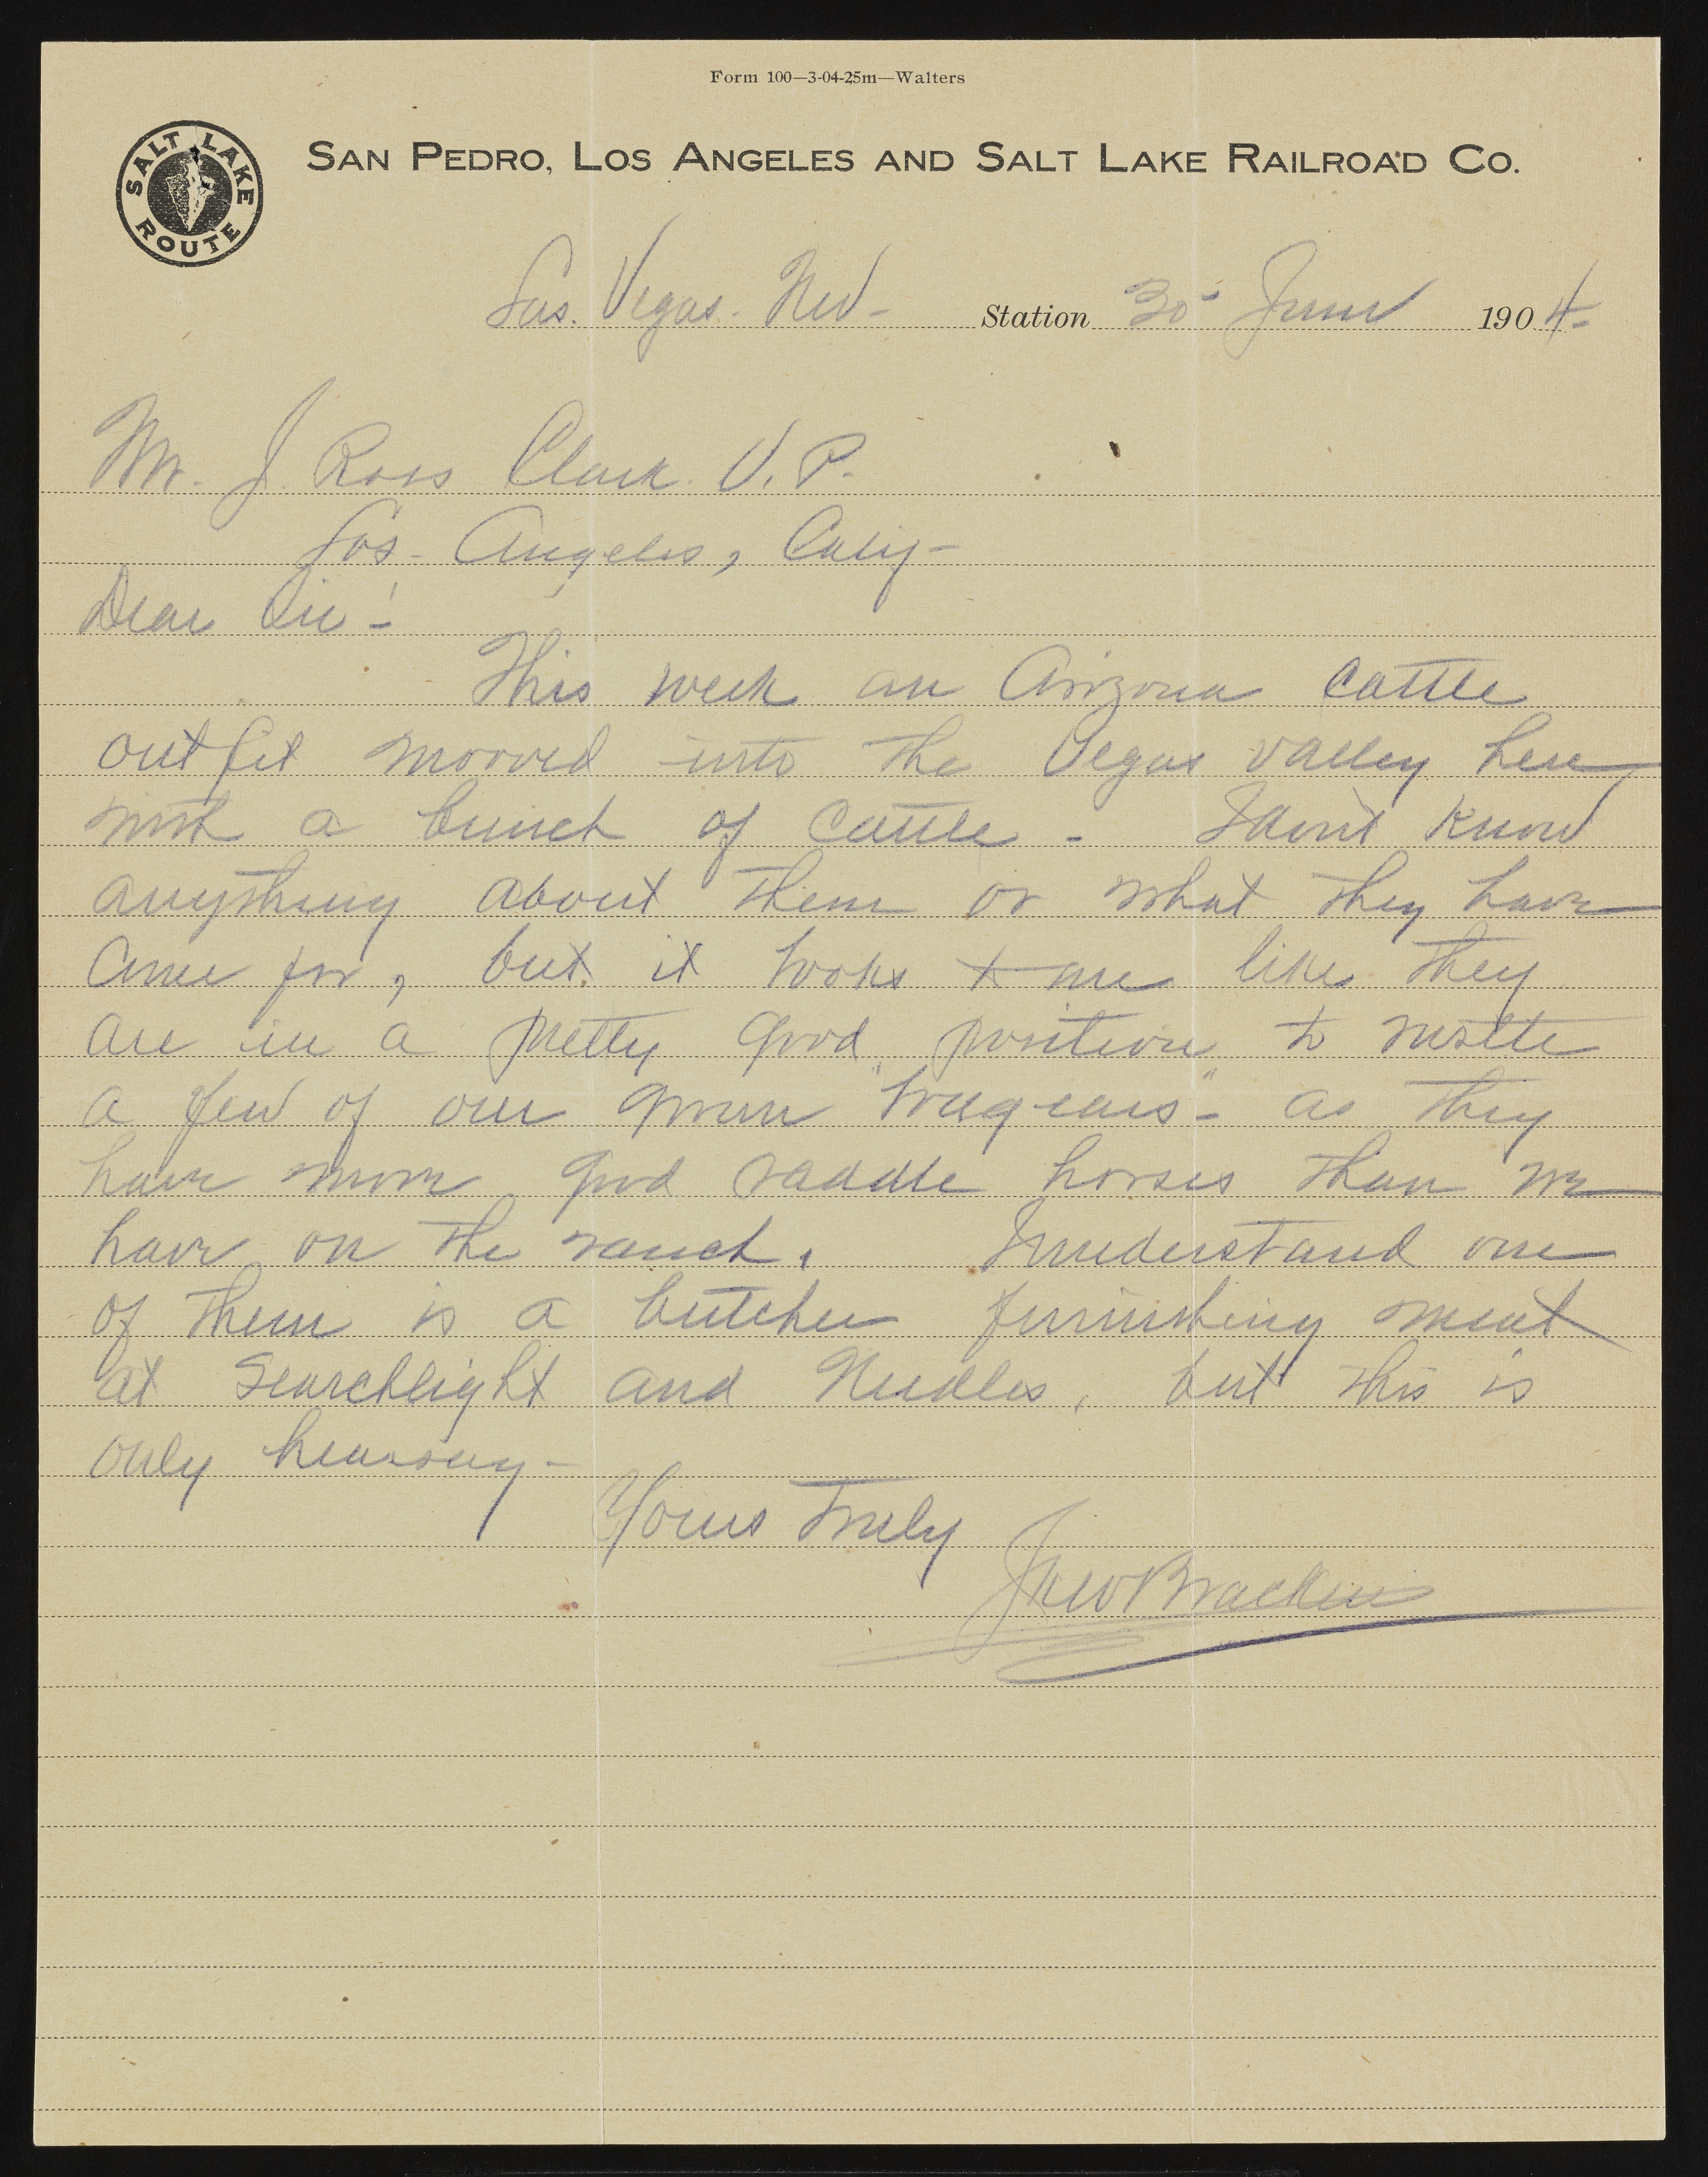 Form 100—3-04-25m—Walters
SALT LAKE ROUTE
SAN PEDRO, LOS ANGELES AND SALT LAKE RAILROAD CO.
Las. Vegas. Nev- Station 30" June 1904-
Mr. J. Ross Clark. V. P.
Los- Angeles, Calif-
Dear Sir-!
This week an Arizona cattle
outfit mooved into the Vegas valley here,
with a bunch of cattle - I don't know
anything about them or what they have
come for, but it looks to me like they
are in a pretty good position to rustle
a few of our grown "longears"- as they
have more good saddle horses than we
have on the ranch. I understand one
of them is a butcher furnishing meat
at Searchlight and Needles, but this is
only hearsay-
Yours Truly
Bracken